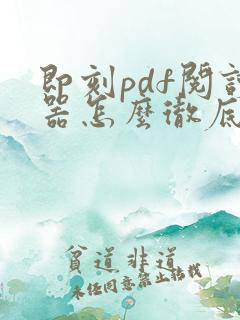 即刻pdf閱
器怎麼徹底
貧道非道
未經同意禁止轉載